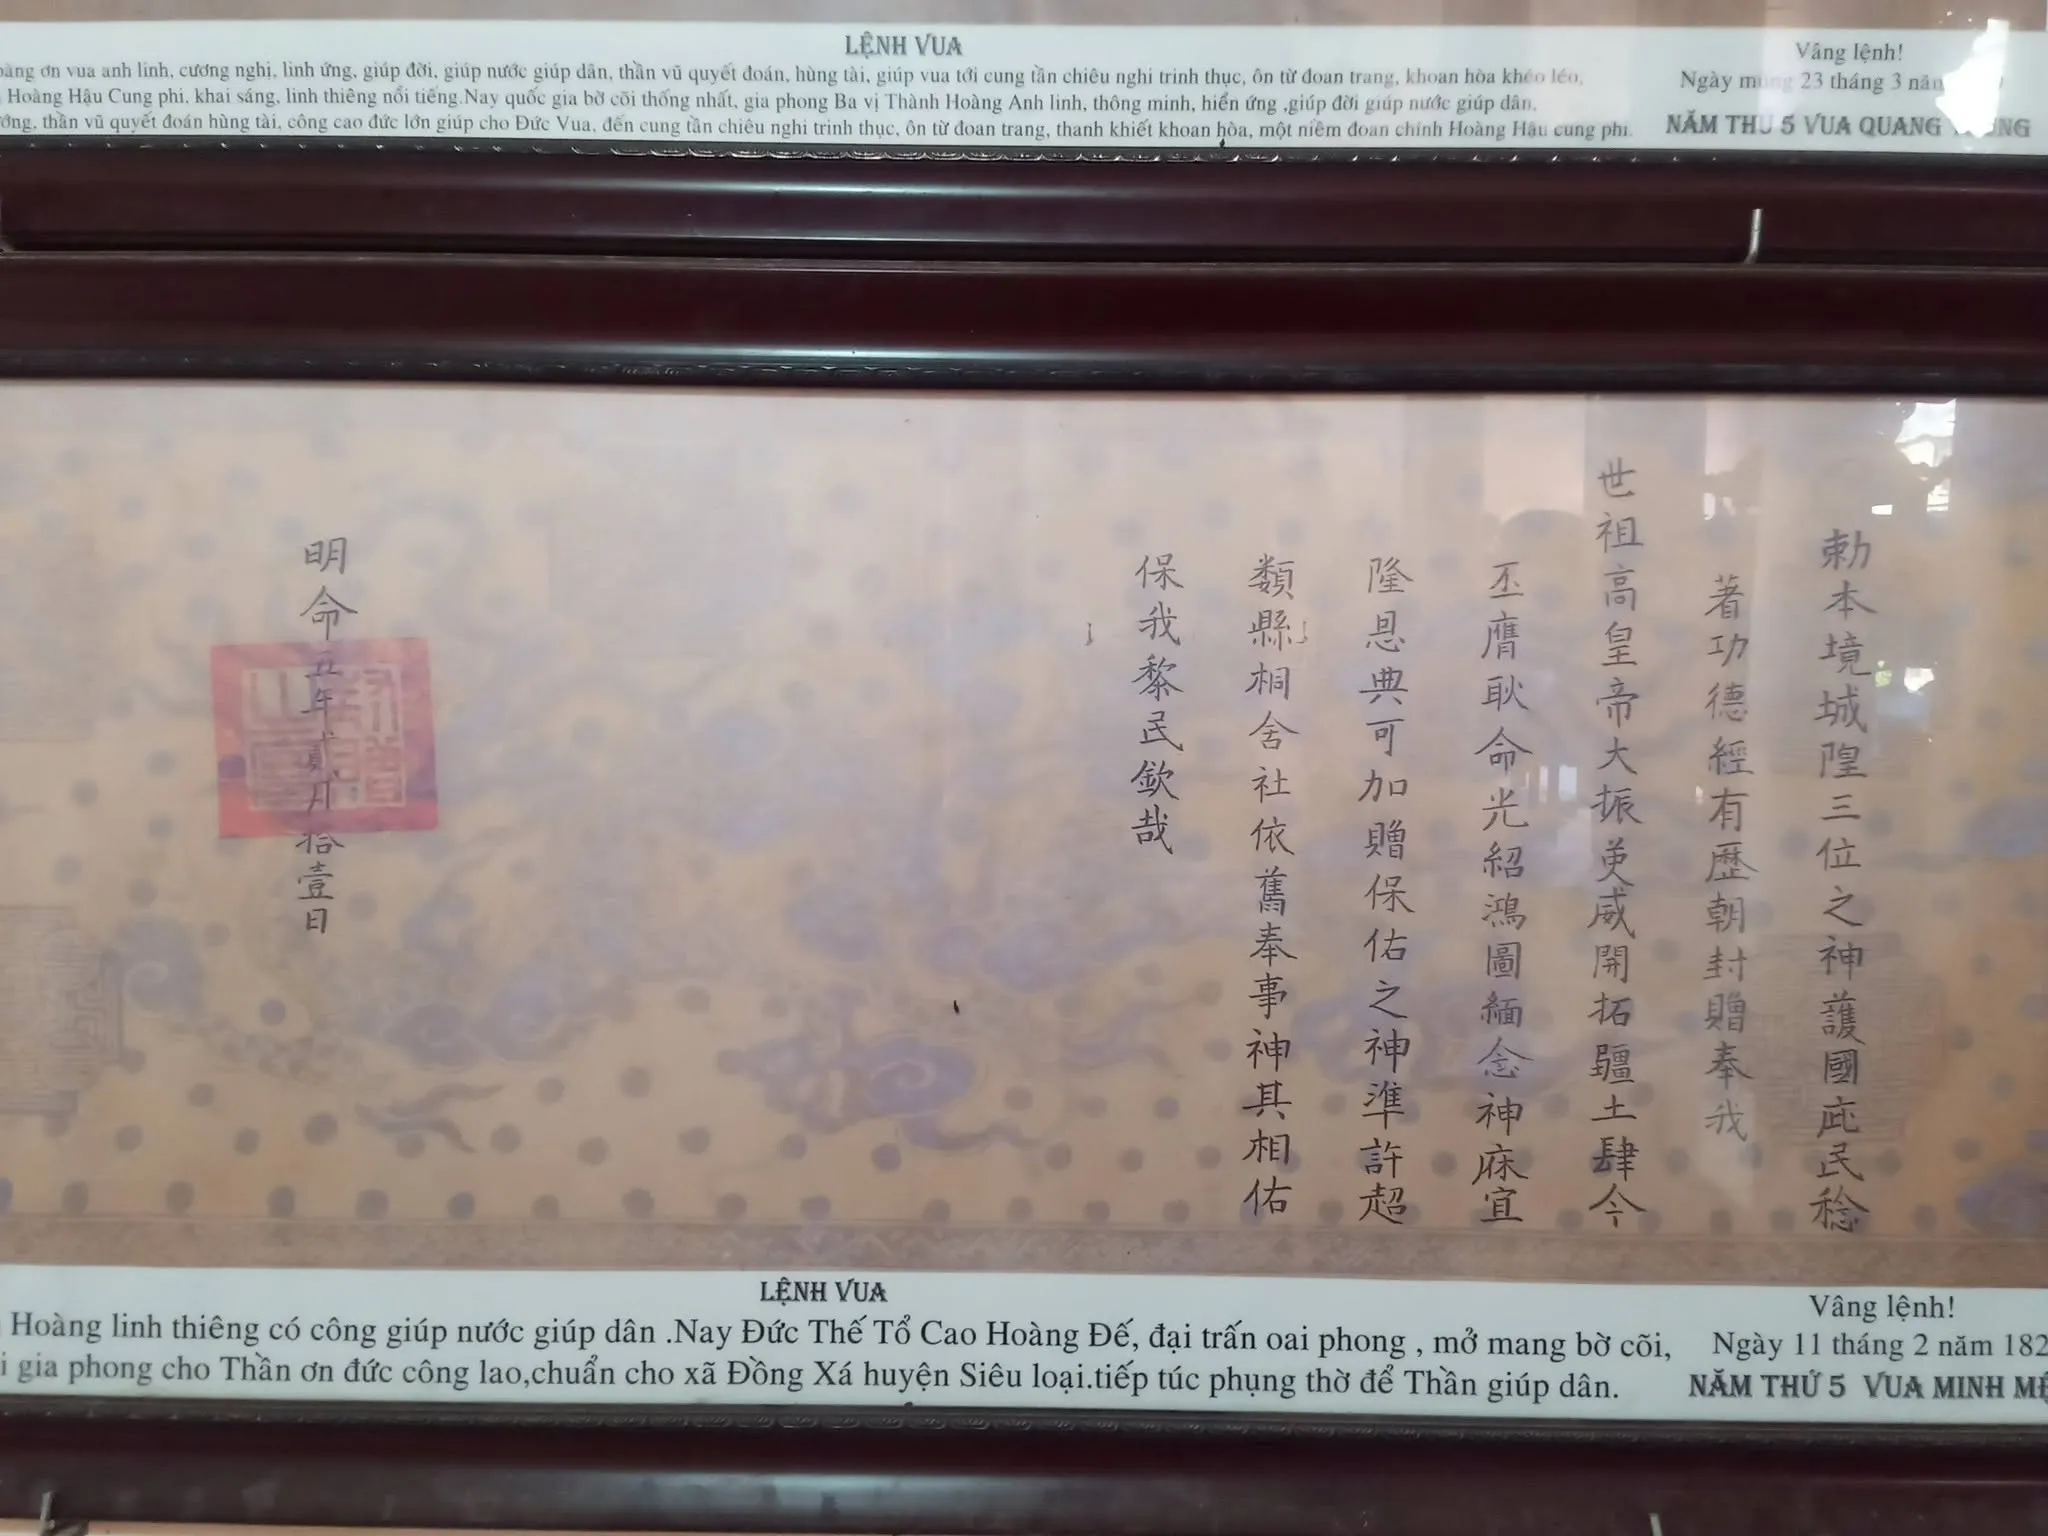 LỆNH VUA
oàng ơn vua anh linh, cương nghị, linh ứng, giúp đời, giúp nước giúp dân, thần vũ quyết đoán, hùng tài, giúp vua tới cung tần chiêu nghi trinh thục, ôn từ đoan trang, khoan hòa khéo léo,
Hoàng Hậu Cung phi, khai sáng, linh thiêng nổi tiếng.Nay quốc gia bờ cõi thống nhất, gia phong Ba vị Thành Hoàng Anh linh, thông minh, hiển ứng ,giúp đời giúp nước giúp dân,
ớng, thần vũ quyết đoán hùng tài, công cao đức lớn giúp cho Đức Vua, đến cung tần chiêu nghi trinh thục, ôn từ đoan trang, thanh khiết khoan hòa, một niềm đoan chính Hoàng Hậu cung phi.
Vâng lệnh!
Ngày mùng 23 tháng 3 năm
NĂM THỨ 5 VUA QUANG TRUNG
勅本境城隍三位之神護國庇民稔
著功德經有歷朝封贈奉我
世祖高皇帝大振英威開拓疆土肆今
丕膺耿命光紹鴻圖緬念神庥宜
隆恩典可加贈保佑之神準許超
類縣桐舍社依舊奉事神其相佑
保我黎民欽哉
明命五年貳月拾壹日
LỆNH VUA
Hoàng linh thiêng có công giúp nước giúp dân .Nay Đức Thế Tổ Cao Hoàng Đế, đại trấn oai phong , mở mang bờ cõi,
i gia phong cho Thần ơn đức công lao,chuẩn cho xã Đồng Xá huyện Siêu loại.tiếp túc phụng thờ để Thần giúp dân.
Vâng lệnh!
Ngày 11 tháng 2 năm 182
NĂM THỨ 5 VUA MINH MỆ